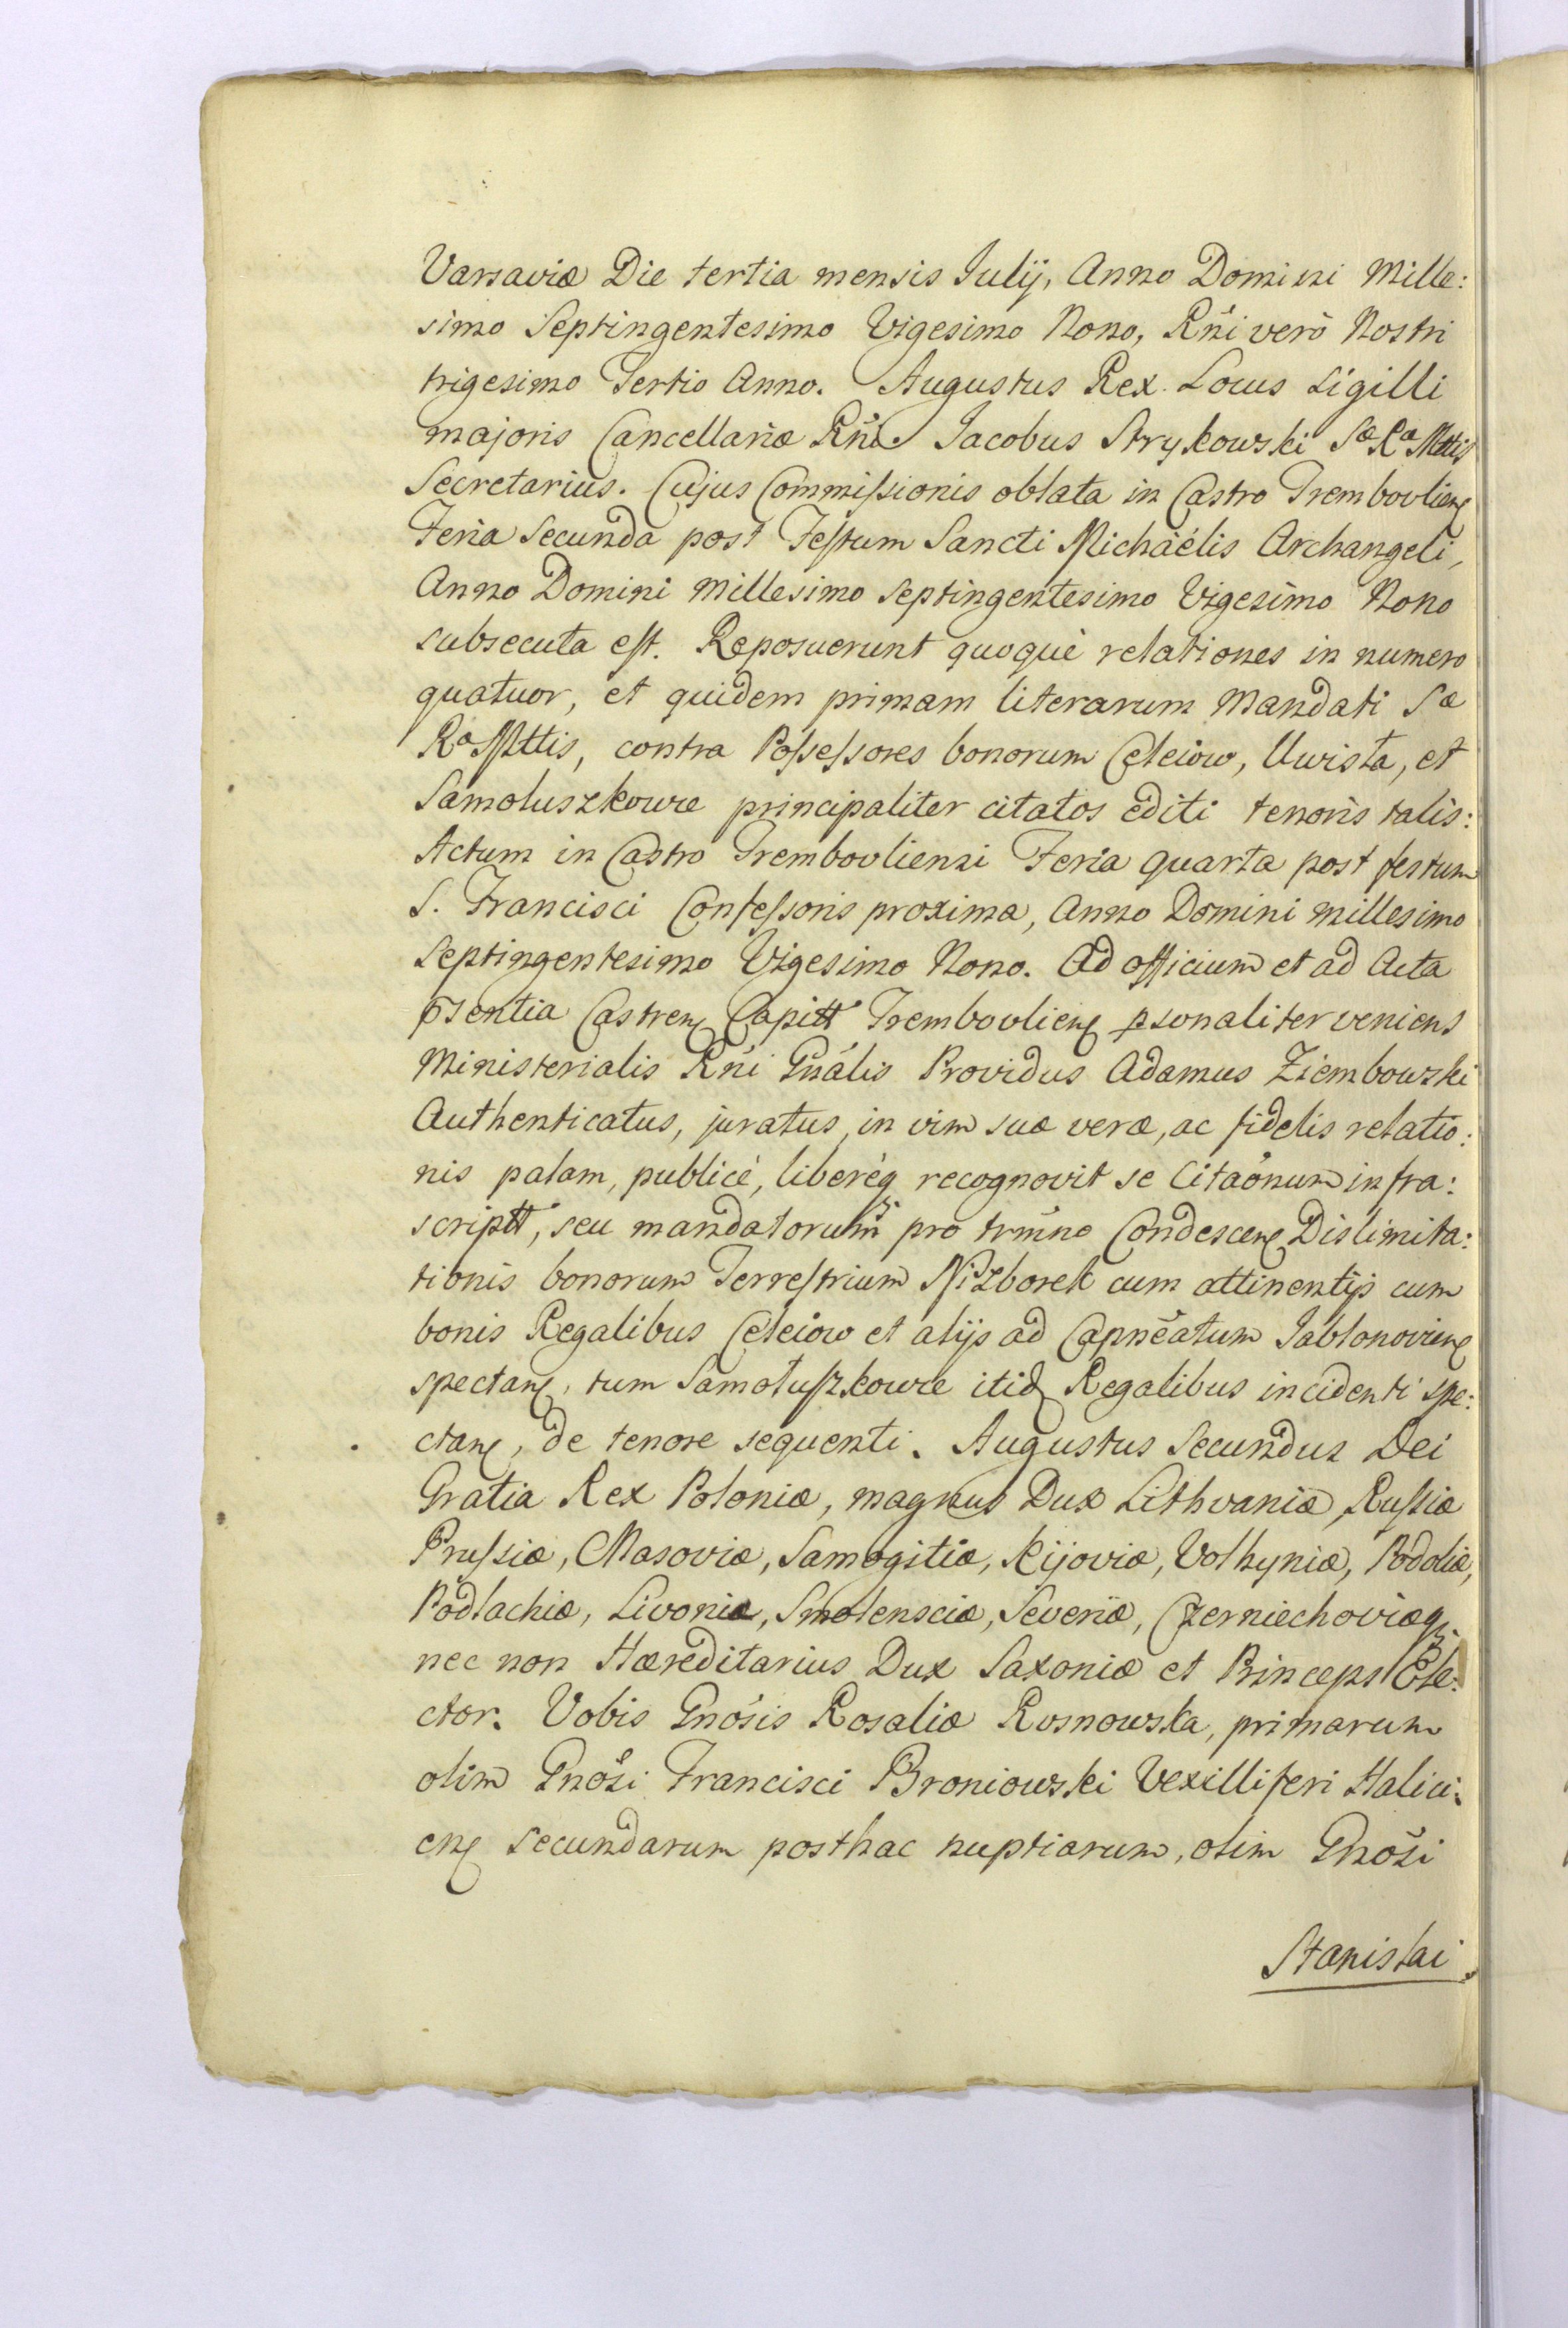 Varsaviæ Die tertia mensis Iulij, Anno Domini Mille:
simo Septingentesimo Vigesimo Nono, Rñi verò Nostri
trigesimo Tertio Anno. Augustus Rex. Locus Sigilli
majoris Cancellariæ Rñi Jacobus Strykowski Sæ Ræ Mttis
Secretarius. Cujus Commiſsionis oblata in Castro Trembovlien̄
Feria Secunda post Feſtum Sancti Michaëlis Archangeli,
Anno Domini Millesimo Septingentesimo Vigesimo Nono
subsecuta eſt. Reposuerunt quoquè relationes in numero
quatuor, et quidem primam literarum Mandati Sæ
Ræ Mttis, contra Poſseſsores bonorum Celeiow, Uwisła, et
Samoluszkowce principaliter citatos editi tenoris talis:
Actum in Castro Trembovliensi Feria quarta post festum
S. Francisci Confeſsoris proxima, Anno Domini millesimo
Septingentesimo Vigesimo Nono. Ad officium et ad Acta
p̄sentia Castren̄ Capitt Trembovlien̄ psonaliter veniens
Ministerialis Rñi Gñalis Providus Adamus Ziembowski
Authenticatus, juratus, in vim suæ veræ, ac fidelis relatio:
nis palam, publicè, liberéq recognovit se Citaõnum infra:
scriptt, seu mandatorum pro trm̃no Condescen̄ Dislimita:
tionis bonorum Terreſtrium Niżborek cum attinentijs cum
bonis Regalibus Celeiow et alijs ad Capnẽatum Jablonovien̄
spectan̄, tum Samołuſzkowce itid̄ Regalibus incidenti spe:
ctan̄, de tenore sequenti. Augustus Secundus Dei
Gratia Rex Poloniæ, magnus Dux Lithvaniæ, Ruſsiæ
Pruſsiæ, Masoviæ, Samogitiæ, Kijoviæ, Volhyniæ, Podoliæ,
Podlachiæ, Livoniæ, Smolensciæ, Severiæ, Czerniechoviæq.
nec non Hæreditarius Dux Saxoniæ et Princeps Ele:
ctor. Vobis Gnõsis Rosaliæ Rosnowska, primarum
olim Gnõsi Francisci Broniowski Vexilliferi Halici:
en̄ secundarum posthac nuptiarum, olim Gnõsi
Stanislai